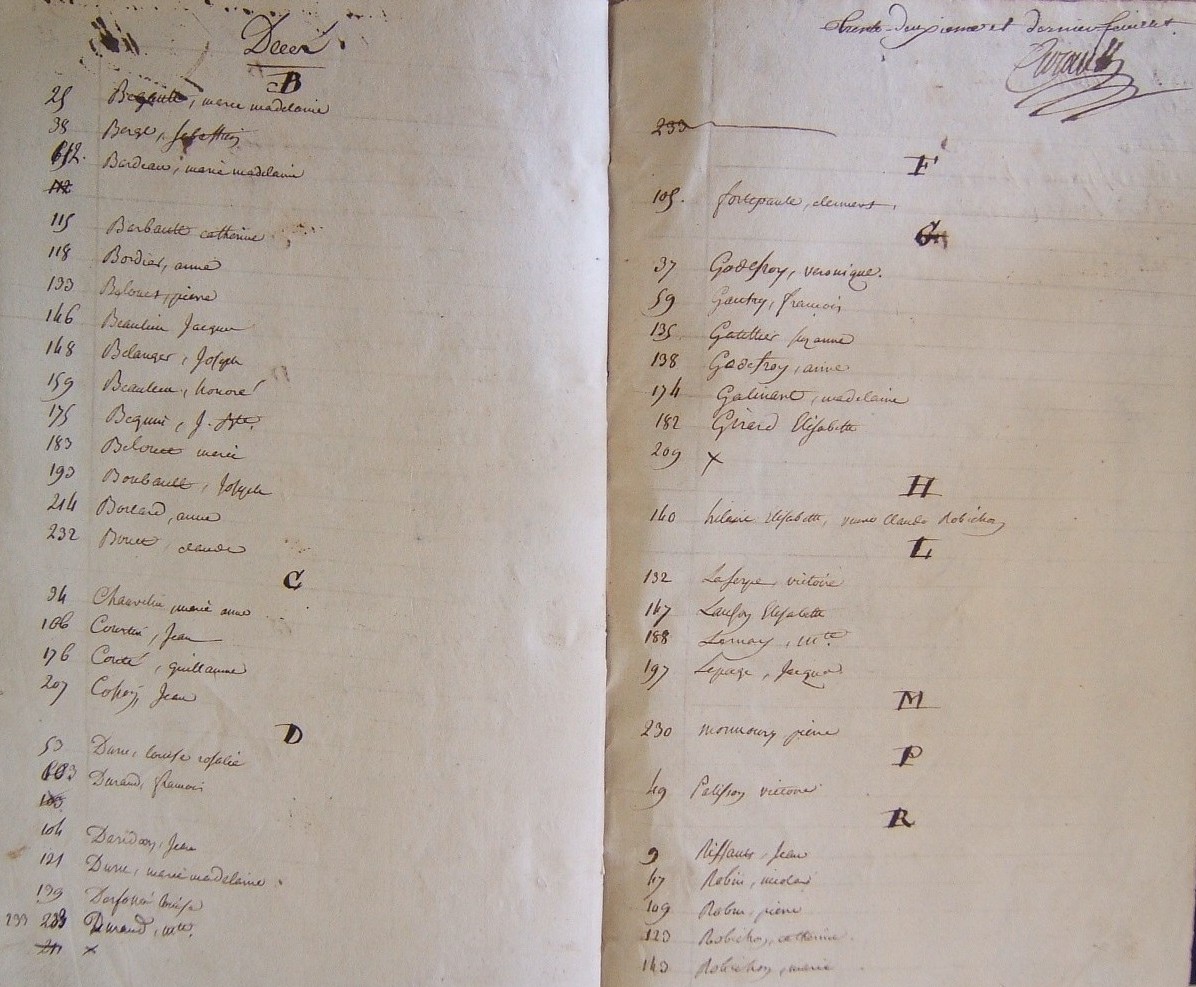 Décés
B
25 Begault, marie madelaine
38 Berge, Sebastien
112. Bardeau, marie madelaine
112
115 Barbault catherine
118 Bordier, anne
133 pierre
146 Beaulieu Jacques
148 Belanger, Joseph
159 Beaulieu, honoré
175 Bequin, J. Bte.
183 Belouet marie
193 Boubault, Joseph
214 anne
232 claude
C
34 Chauvelin, marie anne
106 Courtin, Jean
176 Couté, guillaume
207 Jean
D
53 Dune, louise rosalie
103 Durand, francois
103
104 Jean
121 Dune, marie madelaine.
139 louise
233 Durand, mte.
211 x
trente-deuxieme et dernier feuillet.
233
F
105. fortepaule, clement.
G
37 Godefroy, veronique.
59 Gautry, francois
135 Gauthier suzanne
138 Godefroy, anne
174 Galinant, madelaine
182 Girard Elisabette
209 x
H
140 hilaire Elisabette, veuve Claude Robichon
L
132 victoire
147 Elisabette
188 Lernay, mte.
197 Lepage, Jacques
M
230 monmoury pierre
P
49 Palisson victoire
R
9 Riffault, Jean
47 Robin, nicolas
109 Robin, pierre
123 Robichon, catherine.
143 Robichon, marie